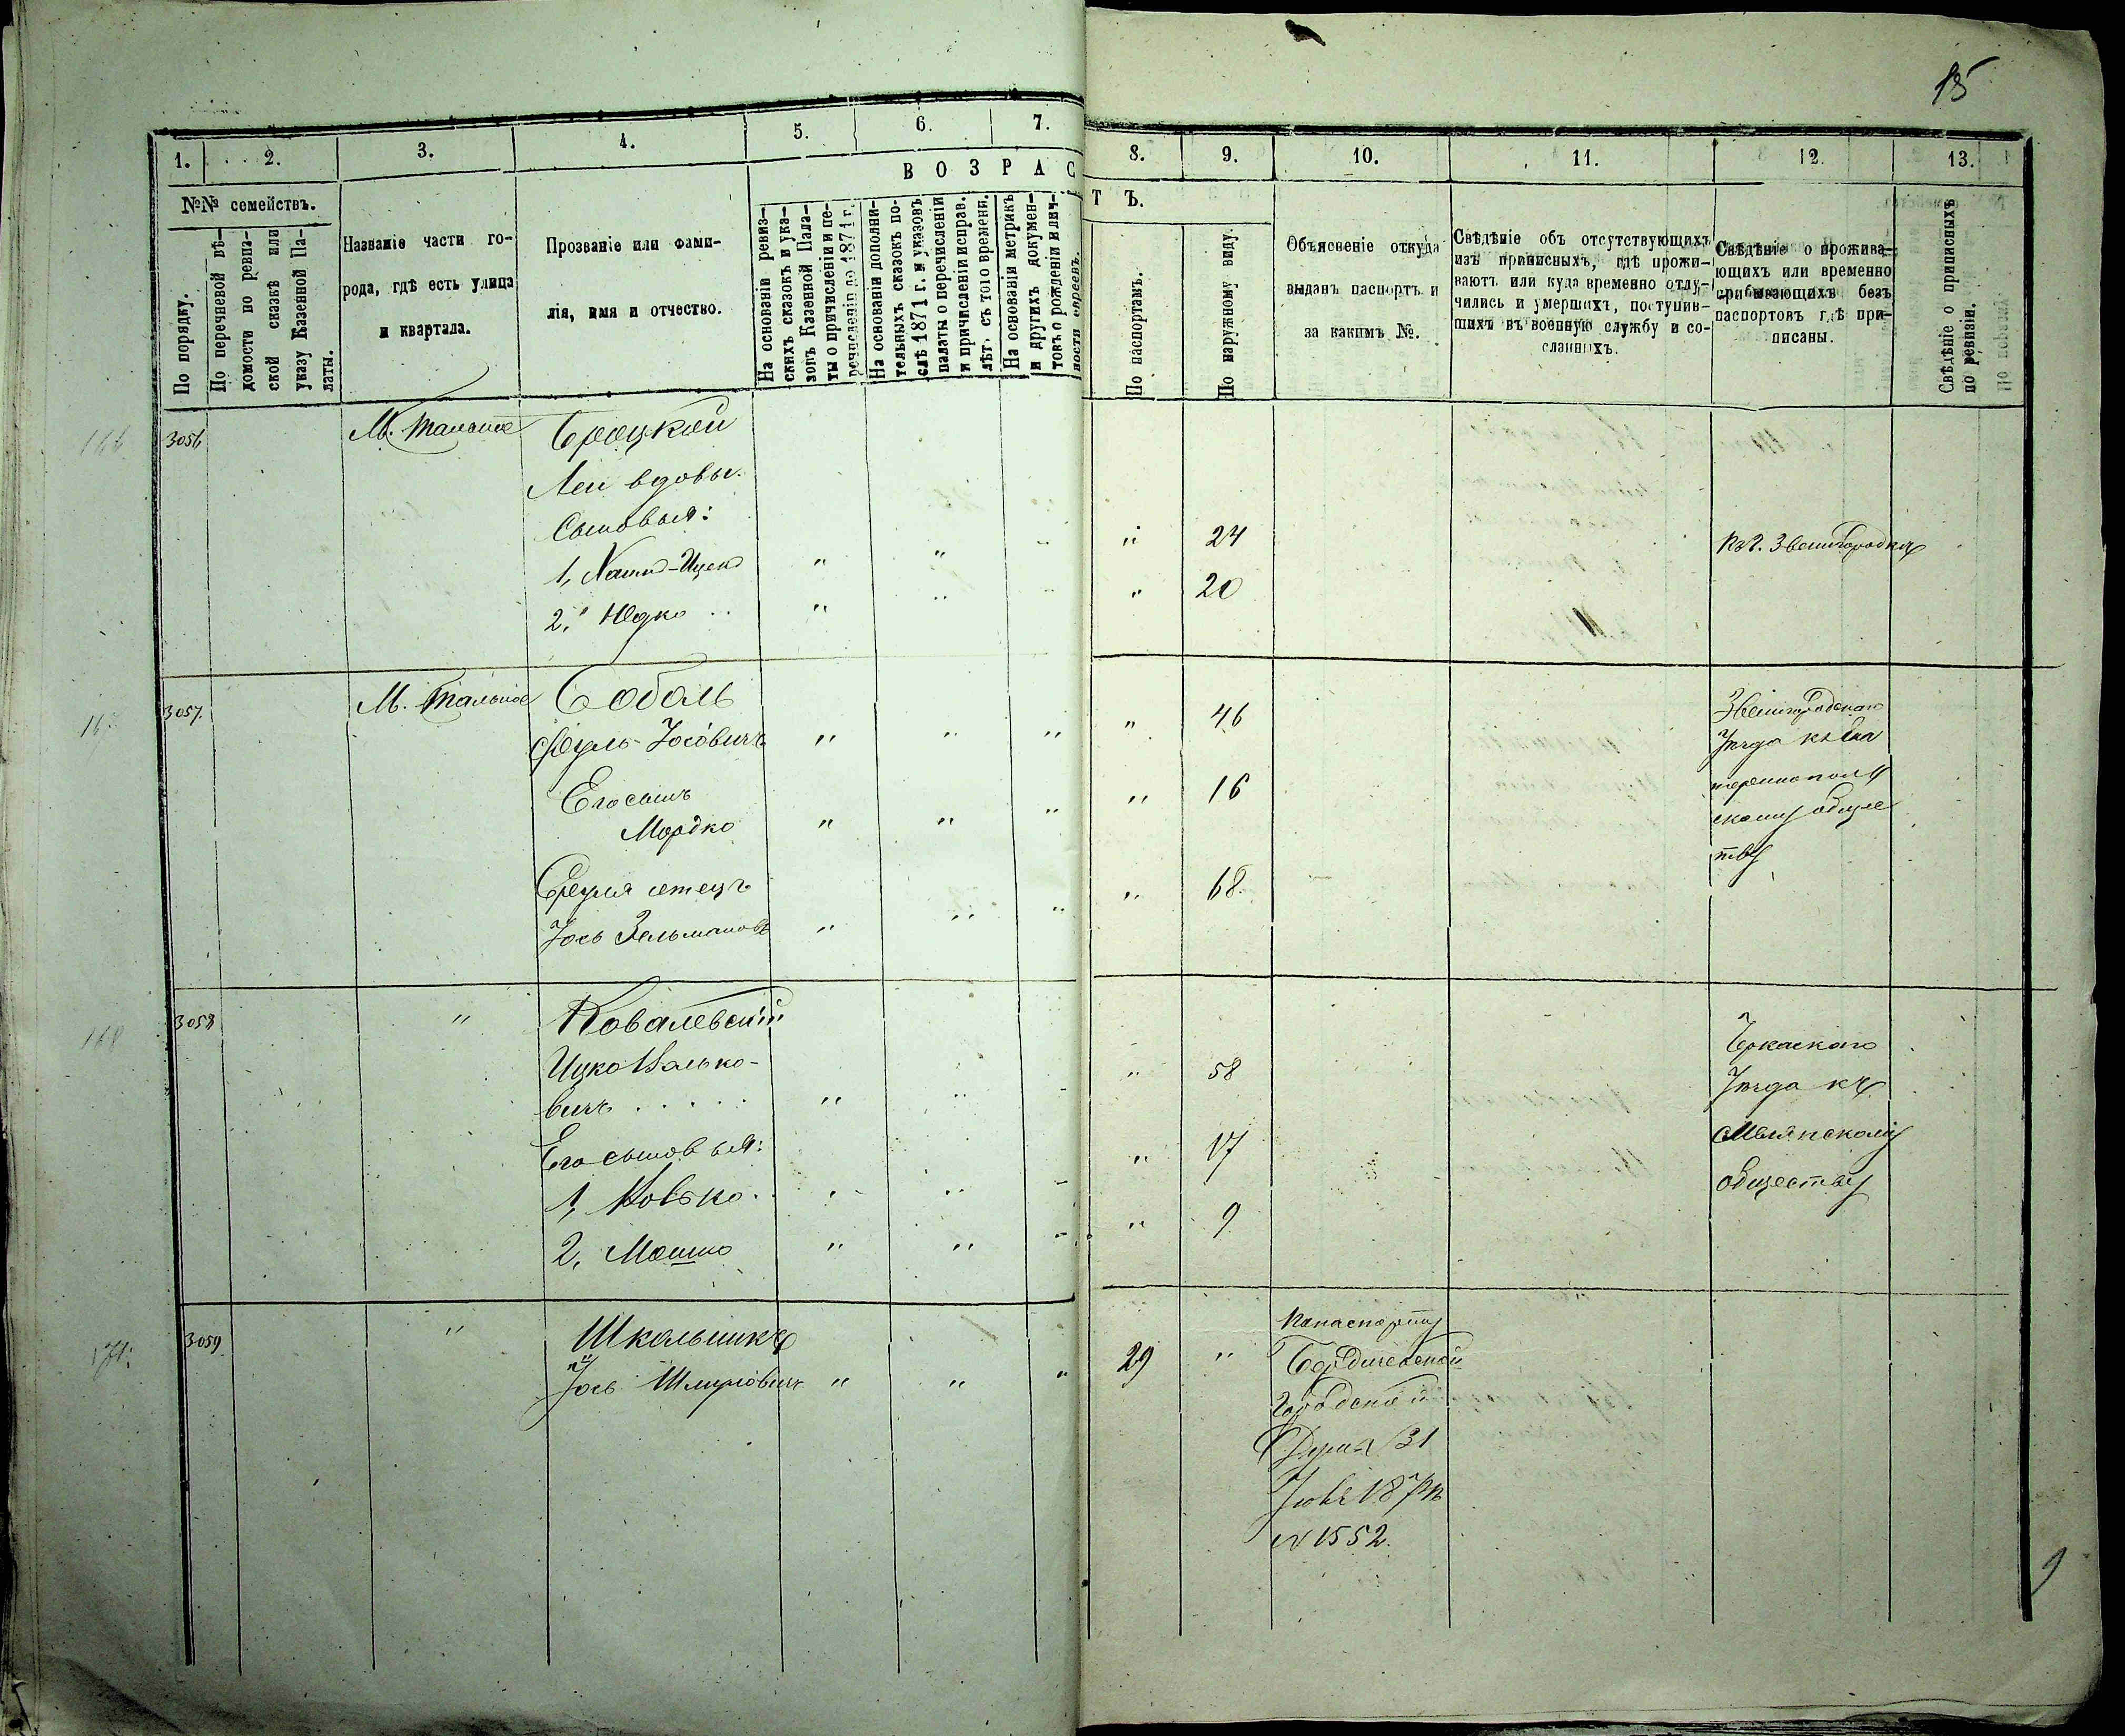 15
1. 2. 3. 4. 5. 6. 7. 8. 9. 10. 11. 12. 13.
В О З Р А С Т Ъ.
№№ семействъ.
По порядку.
По перечневой вѣ-
домости по ревиз-
ской сказкѣ или
указу Казенной Па-
латы.
Названіе части го-
рода, гдѣ есть улица
и квартала.
Прозваніе или фами-
лія, имя и отчество.
На основаніи ревиз-
скихъ сказокъ и ука-
зовъ Казенной Пала-
ты о причисленіи и пе-
речисленіи до 1871 г.
На основаніи дополни-
тельныхъ сказокъ по-
слѣ 1871 г. и указовъ
палаты о перечисленіи
и причисленіи исправ.
лѣтъ съ того времени.
На основаніи метрикъ
и другихъ докумен-
товъ о рожденіи и лич-
ности евреевъ.
По паспортамъ.
По наружному виду.
Объясненіе откуда
выданъ паспортъ и
за какимъ №.
Свѣдѣніе объ отсутствующихъ
изъ приписныхъ, гдѣ прожи-
ваютъ или куда временно отлу-
чились и умершихъ, поступив-
шихъ въ военную службу и со-
сланныхъ.
Свѣдѣніе о прожива-
ющихъ или временно
прибывающихъ безъ
паспортовъ гдѣ при-
писаны.
Свѣдѣніе о приписныхъ
по ревизіи.
166 3056 М. Тальное
Леи вдовы.
Сыновья:
1, Хаимъ-Ицко " " " 24 Къ г. Звенигородкѣ
2, Юдко " " " 20
3057. М. Тальное Соболь
Сруль Іосовичъ " " " " 46
Звенигородскаго
Уѣзда къ Ека
теринополь
скому обще
ству
Его сынъ
Мордко " " " " 16
Сруля отецъ
Іось Зельмановъ " " " " 68
168 3058 " Ковалевскій
Ицко
вичъ " " " 58
Черкаскаго
Уѣзда къ
Смѣлянскому
обществу
Его сыновья:
1, " " 17
2, Мошко " " " 9
171. 3059 " Школьникъ
Іось Шмулёвичъ " " " 29 "
По паспорту
Бердичевской
Городской
Думы 31
N 1552.
9